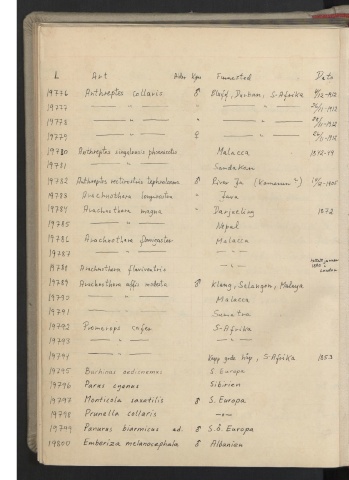 L Art Alder Kjøn Finnested Dato
19776 Anthreptes collaris ♂ Bluff, Durban, S-Afrika 9/12-1912
19777 — " — " — " — 24/11-1912
19778 — " — " — " — 29/11-1912
19779 — " — ♀ — " — 26/11-1912
19780 Anthreptes singalensis phoenicotis Malacca 1872-74
19781 — " — Sandakan
19782 Anthreptes rectirostris tephrolaemus ♂ River Ja (Kamerun) 1905
19783 Arachnothera longirostra " Java
19784 Arachnothera magna " Darjeeling 1872
19785 — " — Nepal
19786 Arachnothera Malacca
19787 — " — — " —
19788 Arachnothera flaviventris — " — London
19789 Arachnothera affis modesta ♂ Klang, Selangor, Malaya
19790 — " — Malacca
19791 — " — Sumatra
19792 Promerops cafer S-Afrika
19793 — " — — " —
19794 — " — Kapp gode håp, S-Afrika 1853
19795 Burhinus oedicnemus S. Europa
19796 Parus cyanus Sibirien
19797 Monticola saxatilis ♂ S. Europa
19798 Prunella collaris — " —
19799 Panurus biarmicus ad. ♂ S.Ö. Europa
19800 Emberiza melanocephala ♂ Albanien